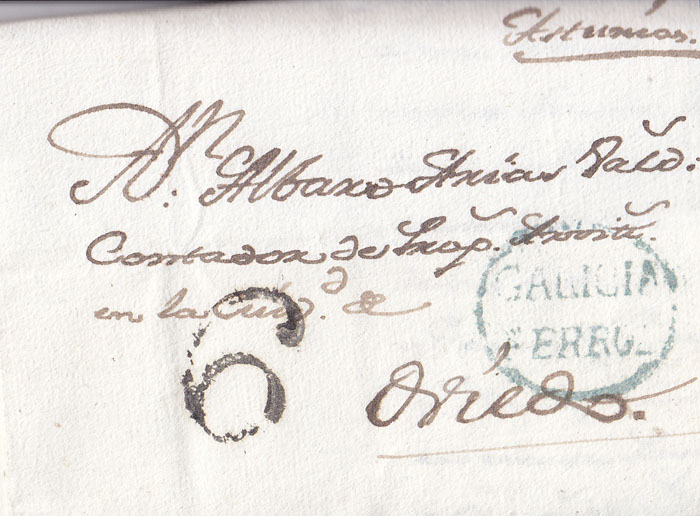 Asturias.
A Dn. Albaro Arias Vald:
Contador de Prop.s Arvitr.
en la Ciud.d de
Oviedo.
GALICIA
FERROL
6